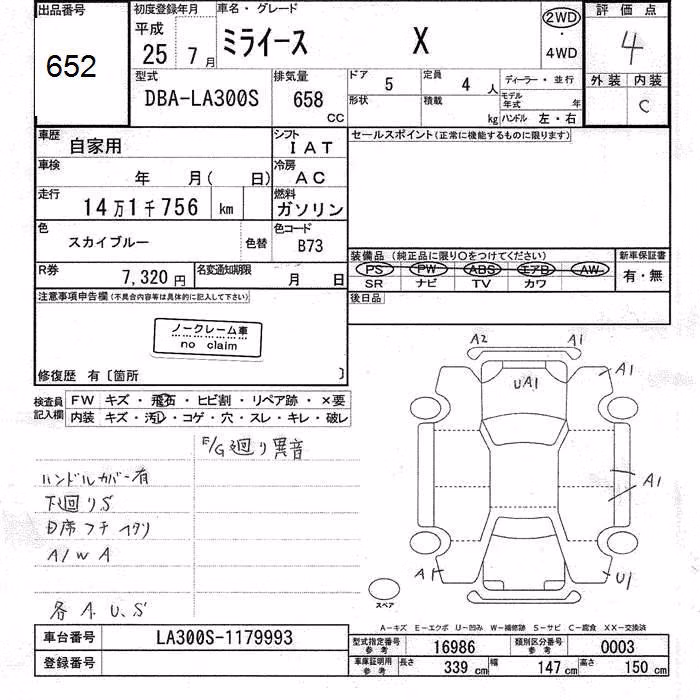 出品番号
652
初度登録年月
平成
25年 7月
車名・グレード
ミライース X
2WD
・
4WD
評価点
4
外装 内装
C
型式
DBA-LA300S
排気量
658 CC
ドア 5
定員 4 人
形状
積載 kg
ディーラー・並行
モデル年式 年
ハンドル 左・右
車歴
自家用
シフト
IAT
車検
年 月( 日)
冷房
AC
走行
14万1千756 km
燃料
ガソリン
色
スカイブルー
色替
色コード
B73
R券
7,320円
名変通知期限
月 日
セールスポイント(正常に機能するものに限ります)
装備品 (純正品に限り○をつけてください)
PS PW ABS エアB AW
SR ナビ TV カワ
新車保証書
有・無
後日品
注意事項申告欄(不具合内容等は具体的に記入して下さい)
ノークレーム車
no claim
修復歴 有〔箇所 〕
検査員記入欄
FW キズ・飛石・ヒビ割・リペア跡・×要
内装 キズ・汚レ・コゲ・穴・スレ・キレ・破レ
E/G廻り異音
ハンドルカバー有
下廻りS
D席フチ ヘタリ
A/W A
各 A.U.S
A2 A1
UA1
A1
A1
A1
U1
スペア
A-キズ E-エクボ U-凹み W-補修跡 S-サビ C-腐食 XX-交換済
車台番号
LA300S-1179993
登録番号
型式指定番号 参考
16986
類別区分番号 参考
0003
車庫証明用 参考
長さ 339 cm
幅 147 cm
高さ 150 cm